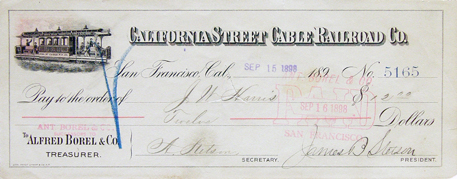 CALIFORNIA STREET CABLE RAILROAD CO.
San Francisco, Cal. SEP 15 1898 189 No. 5165
Pay to the order of J. W. Harris $
PAID
SEP 16 1898
SAN FRANCISCO
Twelve Dollars
ANT. BOREL & CO.
To ALFRED BOREL & CO.
TREASURER.
SECRETARY. James B Stetson PRESIDENT.